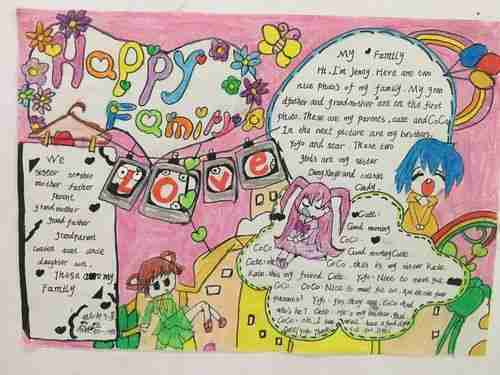 Happy
Family
Love
We
sister brother
mother father
parent
grandmother
grand father
grandparent
cousin aunt uncle
daughter son.
These are my
Family
My Family
Hi. I'm Jenny. Here are two
nice photos of my family. My gran
dfather and grandmother are on the first
photo. These are my parents, Cate and CoCo.
In the next picture are my brothers,
YoYo and star. These two
girls are my sister
and cousin
Candy.
Cate:
Good morning
CoCo:
Good morning Cate.
CoCo: this is my sister Kate.
Kate, this my friend Cate. YoYo: Nice to meet you.
CoCo: Nice to meet you too. Are those your
parents? YoYo: Yes, they are. CoCo: And
who's he? Cate: He's my brother, Bob
CoCo: Oh, I see. Well, have a good day!